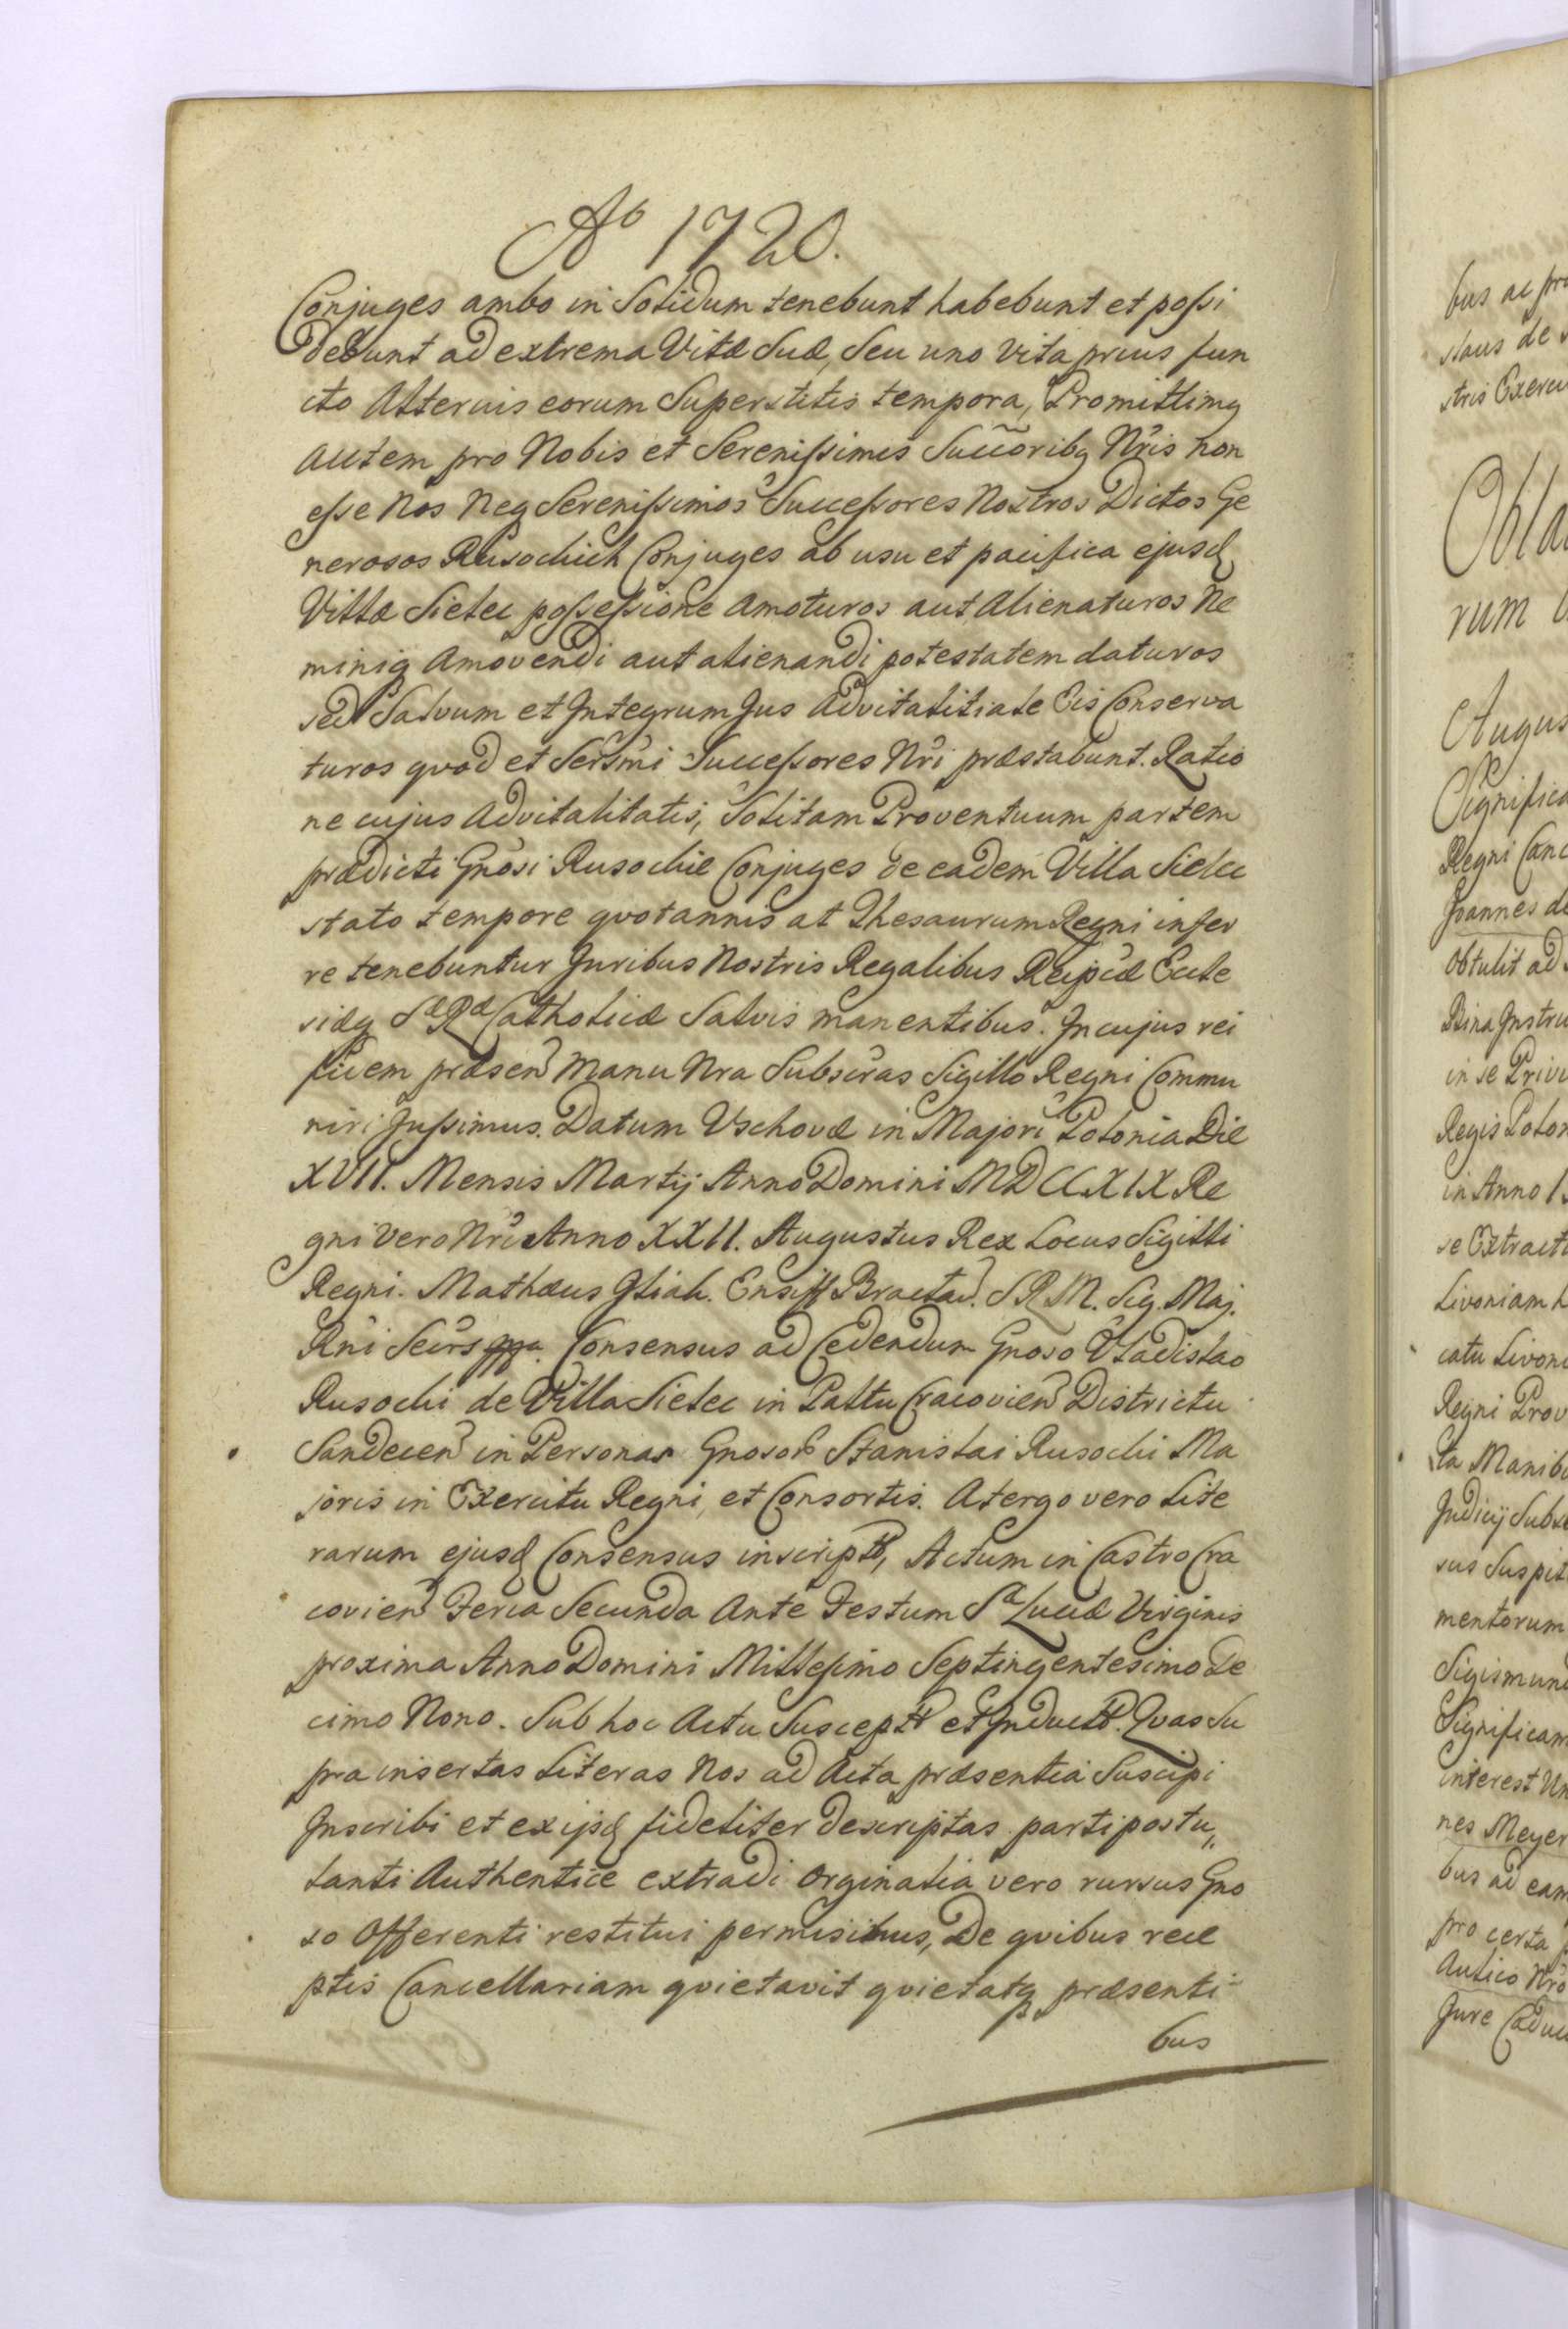 Ao 1720.
Conjuges ambo in Solidum tenebunt habebunt et possi
debunt ad extrema Vitæ Suæ, Seu uno Vita prius fun
cto Alterius eorum Superstitis tempora, Promittimq
autem pro Nobis et Serenissimis Succõribq Nris non
esse Nos Neq Serenissimos Successores Nostros Dictos Ge
nerosos Rusochich Conjuges ab usu et pacifica ejusd
Villæ Sielec possessione Amoturos aut Alienaturos Ne
miniq Amovendi aut alienandi potestatem daturos
sed Salvum et Integrum Jus Advitalitiale Eis Conserva
turos quod et Sersmi Successores Nri præstabunt. Ratio
ne cujus Advitalitatis, Solitam Proventuum partem
prædicti Gnosi Rusochie Conjuges de eadem Villa Sielec
stato tempore quotannis at Thesaurum Regni infer
re tenebuntur Juribus Nostris Regalibus Reipcæ Eccle
siæq Sæ Ræ Catholicæ Salvis manentibus. In cujus rei
fidem præsen Manu Nra Subscras Sigillo Regni Commu
niri Jussimus. Datum Vschovæ in Majori Polonia Die
XVII. Mensis Martij Anno Domini MDCCXIX Re
gni Vero Nri Anno XXII. Augustus Rex Locus Sigilli
Regni. Mathæus Gliah. Ensiff Braclav. S R M. Sig. Maj.
Rni Secrs mpp. Consensus ad Cedendum Gnoso Vladislao
Rusochi de Villa Sielec in Pallu Cracovien Districtu
Sandecen in Personas Gnosor Stanislai Rusochi Ma
joris in Exercitu Regni, et Consortis. Atergo vero Lite
rarum ejusd Consensus inscript, Actum in Castro Cra
covien Feria Secunda Ante Festum Sæ Luciæ Virginis
proxima Anno Domini Millesimo Septingentesimo De
cimo Nono. Sub hoc Actu Suscept et Induct. Quas Su
pra insertas Literas Nos ad Acta præsentia Suscipi
Inscribi et ex ijsd fideliter descriptas parti postu„
lanti Authentice extradi orginalia vero rursus Gno
so Offerenti restitui permisimus, De quibus rece
ptis Cancellariam quietavit quietatq præsenti
bus
bus ac
staus de
stris Exerci
Obla
rum
Augus
Significa
Regni Canc
Joannes de
Obtulit ad
Bina Instru
in se Privi
Regis Polon
in Anno
se Extract
Livoniam
catu Livoni
Regni Prov
ta Manib
Judicij Subs
sus Suspit
mentorum
Sigismund
Significam
interest Un
nes Meyer
bus ad eam
pro certa
Aulico Nro
Jure Caduc